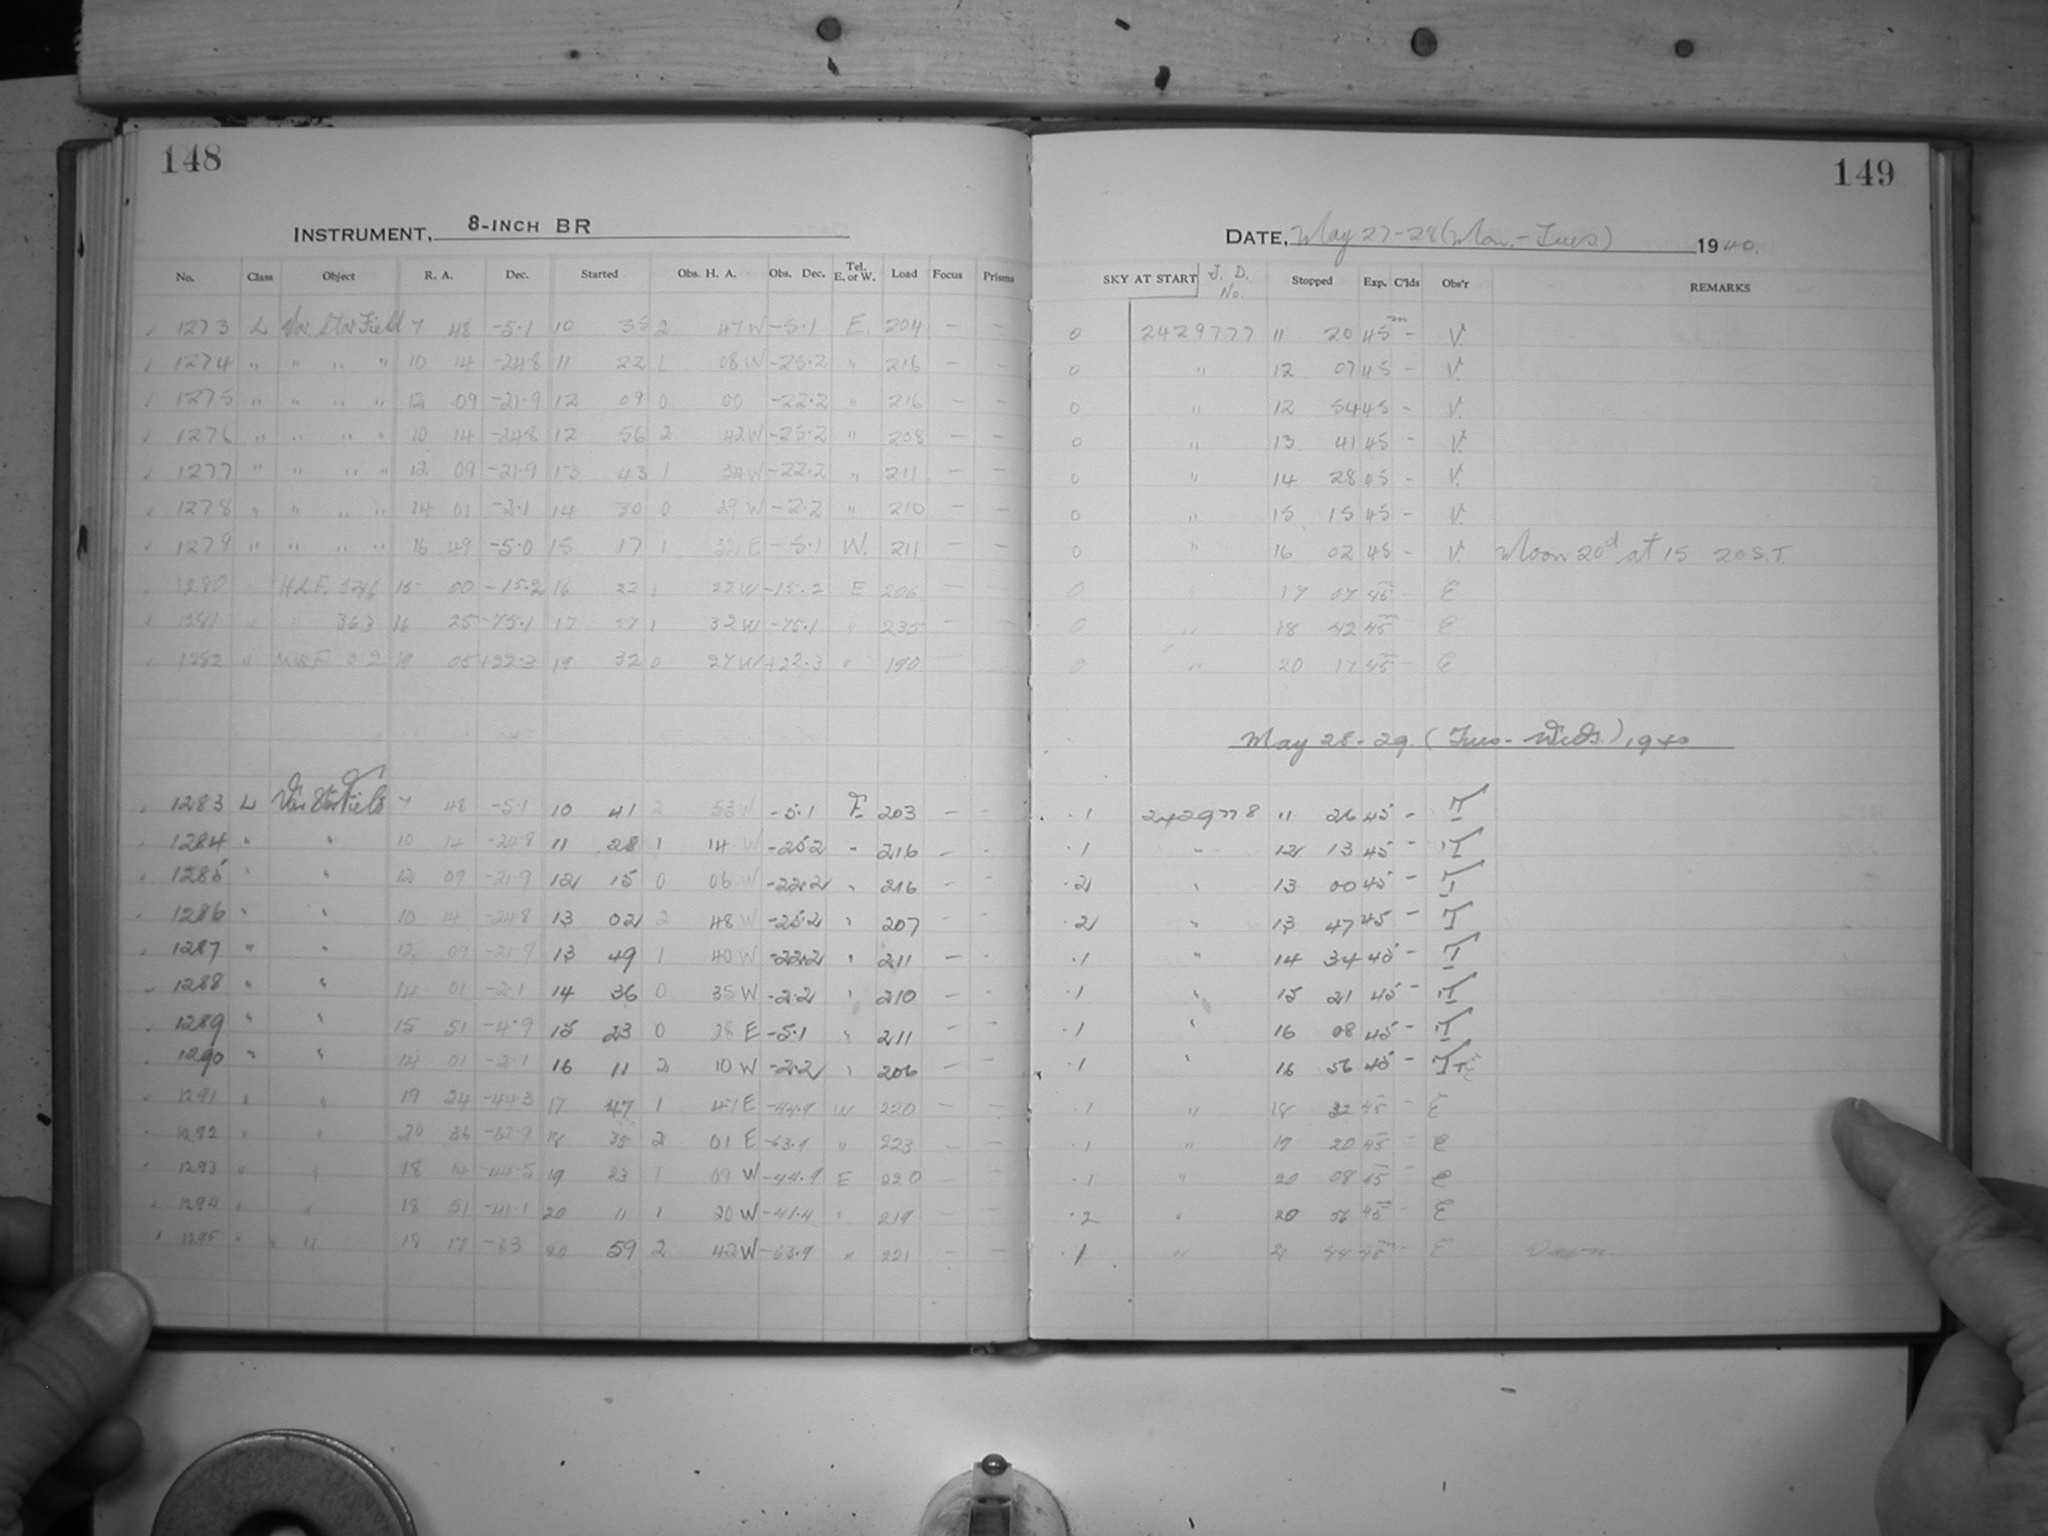 148
INSTRUMENT, 8-INCH BR
No. Class Object R. A. Dec. Started Obs. H. A. Obs. Dec. Tel. E. or W. Load Focus Prisms
1273 L Var. Star Field 7 48 -5.1 10 35 2 47 W -5.1 E. 204 — —
1274 " " " " 10 14 -24.8 11 22 1 08 W -25.2 " 216 — —
1275 " " " " 12 09 -21.9 12 09 0 00 -22.2 " 216 — —
1276 " " " " 10 14 -24.8 12 56 2 42 W -25.2 " 208 — —
1277 " " " " 12 09 -21.9 13 43 1 34 W -22.2 " 211 — —
1278 " " " " 14 01 -2.1 14 30 0 29 W -2.2 " 210 — —
1279 " " " " 16 49 -5.0 15 17 1 32 E -5.1 W. 211 — —
1280 " 15 00 -15.2 16 22 1 22 W -15.2 E 206 — —
1281 " " 363 16 25 -75.1 17 57 1 32 W -75.1 " 235 — —
1282 " 19 05 +22.3 19 32 0 27 W +22.3 " 190 — —
1283 L Var Star Field 7 48 -5.1 10 41 2 53 W -5.1 E 203 — -
1284 " " 10 14 -24.8 11 28 1 14 W -25.2 " 216 — -
1285 " " 12 09 -21.9 12 15 0 06 W -22.2 " 216 — -
1286 " " 10 14 -24.8 13 02 2 48 W -25.2 " 207 — -
1287 " " 12 09 -21.9 13 49 1 40 W -22.2 " 211 — -
1288 " " 14 01 -2.1 14 36 0 35 W -2.2 " 210 — -
1289 " " 15 51 -4.9 15 23 0 28 E -5.1 " 211 — —
1290 " " 14 01 -2.1 16 11 2 10 W -2.2 " 206 — —
1291 " " 19 34 -44.3 17 47 1 47 E -44.9 W 220 — —
1292 " " 20 36 -62.9 18 35 2 01 E -63.9 " 223 — —
1293 " " 18 14 -44.5 19 23 1 09 W -44.9 E 220 — —
1294 " " 18 51 -41.1 20 11 1 20 W -41.4 " 219 — —
1295 " " 18 17 -63 20 59 2 42 W -63.9 " 221 — —
149
DATE, May 27-28 (Mon.-Tues) 1940.
SKY AT START J. D. No. Stopped Exp. C'lds Obs'r REMARKS
0 2429777 11 20 45m - V.
0 " 12 07 45 - V.
0 " 12 54 45 - V.
0 " 13 41 45 - V.
0 " 14 28 45 - V.
0 " 15 15 45 - V.
0 " 16 02 45 - V. Moon 20d at 15 20 S.T.
0 " 17 07 45 - E
0 " 18 42 45 - E
0 " 20 17 45 - E
May 28-29. (Tues-Weds.), 1940
.1 2429778 11 26 45 - T
.1 " 12 13 45 - T
.2 " 13 00 45 - T
.2 " 13 47 45 - T
.1 " 14 34 45 - T
.1 " 15 21 45 - T
.1 " 16 08 45 - T
.1 " 16 56 45 -
.1 " 18 32 45 - E
.1 " 19 20 45 - E
.1 " 20 08 45 - E
.2 " 20 56 45 - E
.1 " 21 44 45 - E